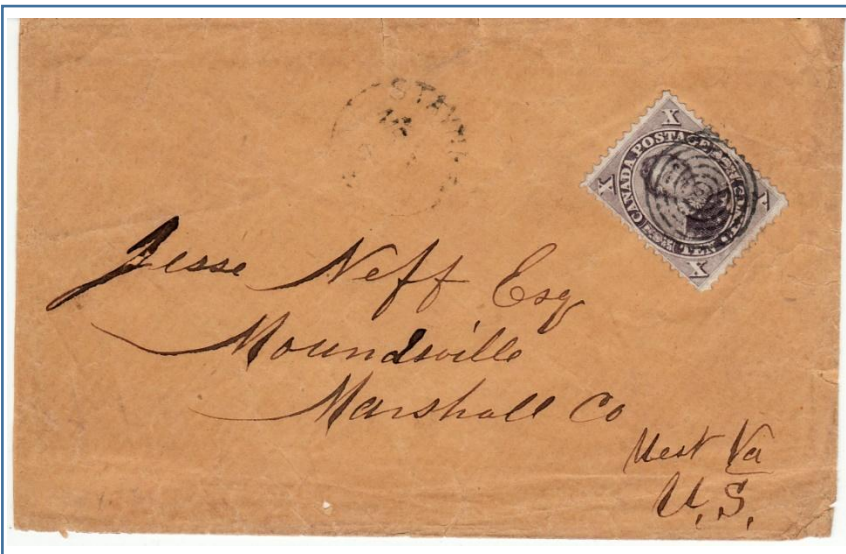 X
CANADA POSTAGE
X
X
X
Jesse Neff Esq
Moundsville
Marshall Co
West Va
U.S.